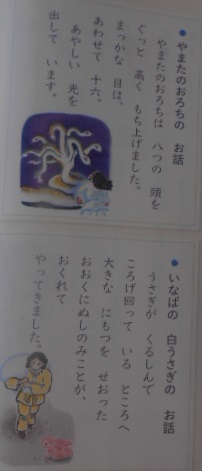 ● やまたのおろちの　お話
やまたのおろちは　八つの　頭を
ぐっと　高く　もち上げました。
まっかな　目は、
あわせて　十六。
あやしい　光を
出して　います。
● いなばの　白うさぎの　お話
うさぎが　くるしんで
ころげ回って　いる　ところへ
大きな　にもつを　せおった
おおくにぬしのみことが、
おくれて
やってきました。